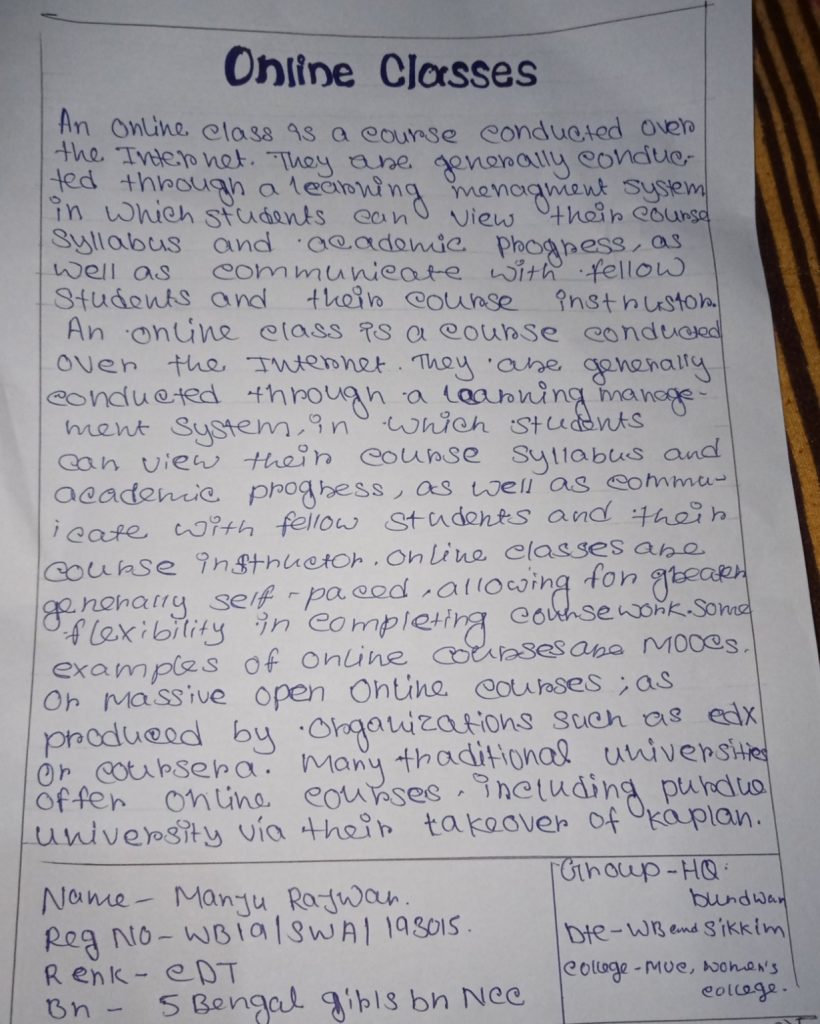 Online Classes
An online class is a course conducted over
the Internet. They are generally conduc-
ted through a learning menagment system
in which students can view their course
Syllabus and academic progress, as
well as communicate with fellow
Students and their course instrustor.
An online class is a course conducted
over the Internet. They are generally
conducted through a learning manage-
ment system, in which students
can view their course syllabus and
academic progress, as well as commu-
icate with fellow students and their
course instructor. Online classes are
generally self-paced, allowing for greater
flexibility in completing coursework. Some
examples of online courses are MOOCs.
Or Massive open online courses; as
produced by organizations such as edx
or coursera. Many traditional universities
offer online courses, including purdue
university via their takeover of kaplan.
Name - Manju Rajwar.
Reg No - WB19/SWA/193015.
Renk - CDT
Bn - 5 Bengal girls bn NCC
Group - HQ.
burdwan
Dte - WB and Sikkim
College - MUC, women's
college.